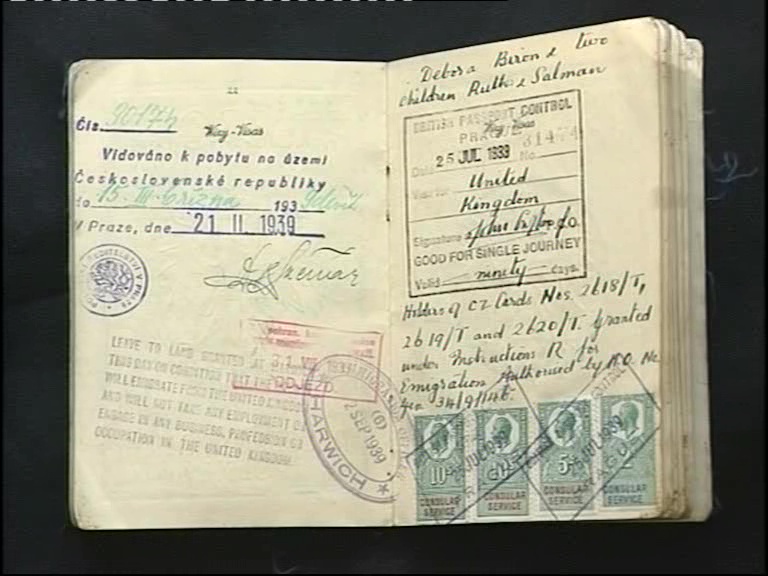 22
Čís. 30174
Wizy-Visas
Vidováno k pobytu na území
Československé republiky
do 15. III. března 193
V Praze, dne 21 II. 1939
LEAVE TO LAND GRANTED AT HARWICH
THIS DAY ON CONDITION THAT THE HOLDER
WILL EMIGRATE FROM THE UNITED KINGDOM
AND WILL NOT TAKE ANY EMPLOYMENT OR
ENGAGE IN ANY BUSINESS, PROFESSION OR
OCCUPATION IN THE UNITED KINGDOM
31 VIII
ODJEZD
IMMIGRATION OFFICER
(6)
2 SEP 1939
HARWICH
Debora Biron & two
children Ruth & Salman
BRITISH PASSPORT CONTROL
Wizy-Visas
PRAGUE
Date 25 JUL 1939 No. 31474
Visa for United
Kingdom
Signature P.C.O.
GOOD FOR SINGLE JOURNEY
Valid ninety days
Holders of CZ Cards Nos. 2618/T,
2619/T and 2620/T. Granted
under Instructions R. for
Emigration Authorised by H.O. No.
Gen 34/9/146.
10/- 5/-
CONSULAR SERVICE CONSULAR SERVICE CONSULAR SERVICE CONSULAR SERVICE
JUL 1939
PRAGUE